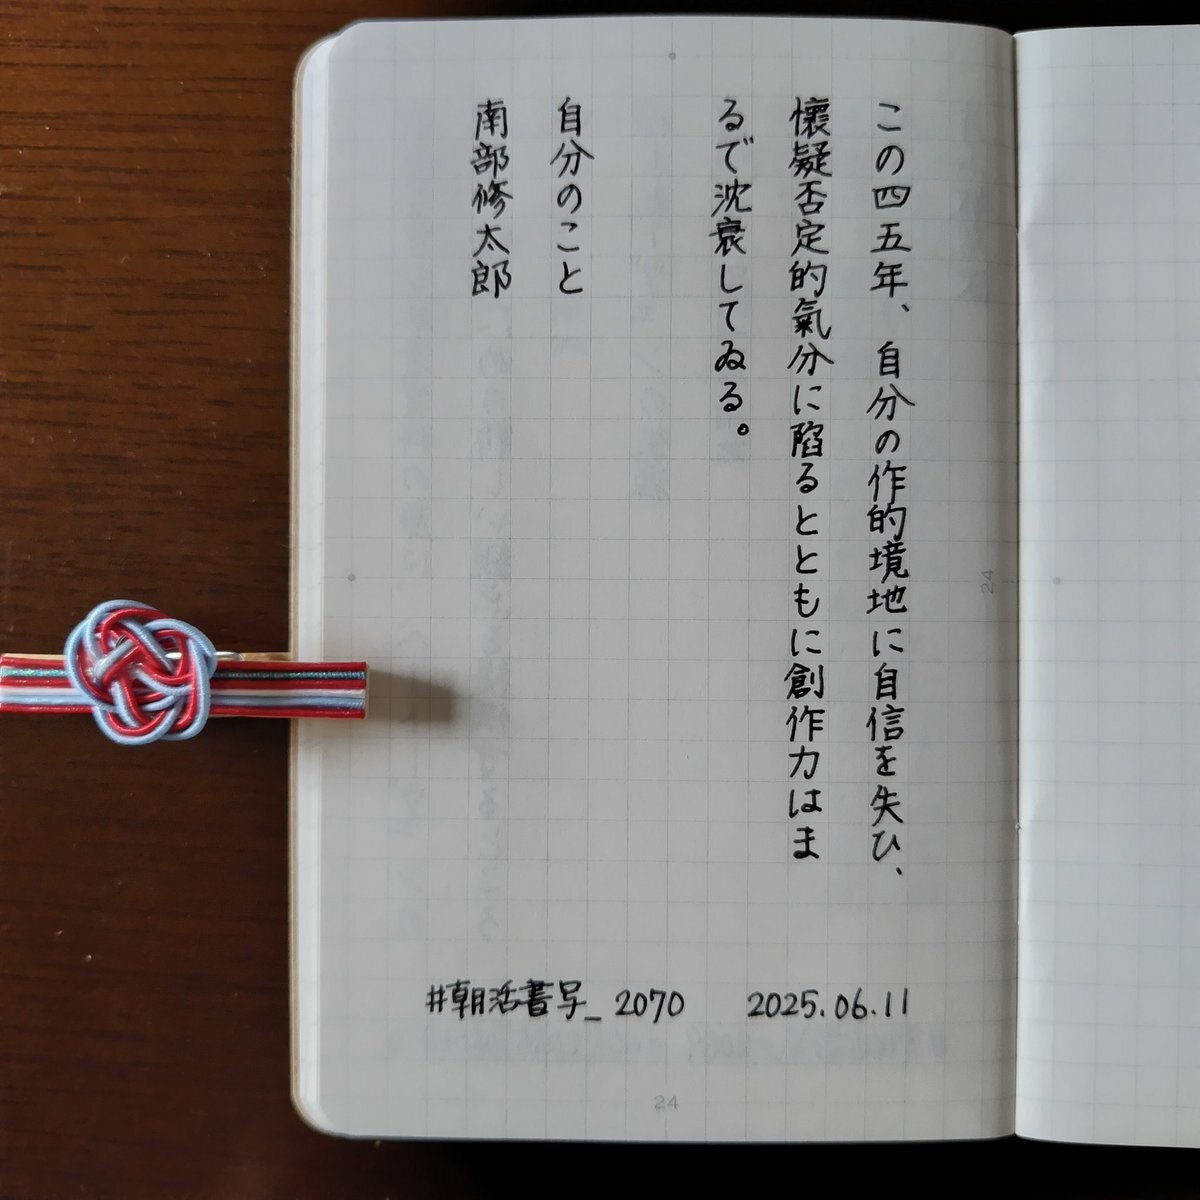 この四五年、自分の作的境地に自信を失ひ、
懷疑否定的氣分に陷るとともに創作力はま
るで沈衰してゐる。
自分のこと
南部修太郎
#朝活書写_2070 2025.06.11
24
24